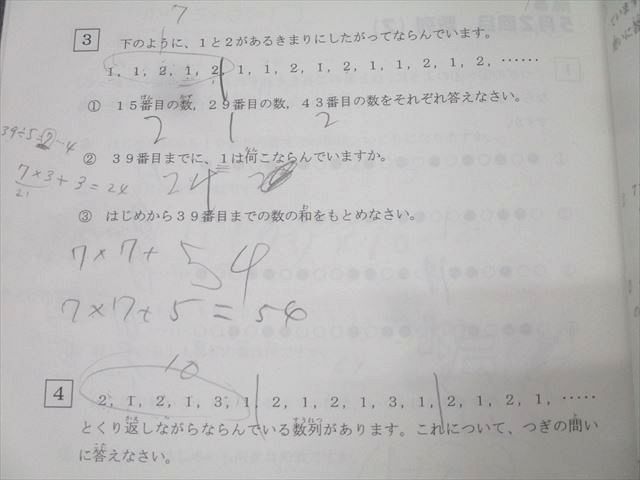 7
3 下のように、1と2があるきまりにしたがってならんでいます。
1, 1, 2, 1, 2, 1, 1, 2, 1, 2, 1, 1, 2, 1, 2, ……
① 15番目の数, 29番目の数, 43番目の数をそれぞれ答えなさい。
2 1 2
39÷5=7…4
② 39番目までに、1は何こならんでいますか。
7×3+3=24
21
24
③ はじめから39番目までの数の和をもとめなさい。
7×7+ 54
7×7+5=54
10
4 2, 1, 2, 1, 3, 1, 2, 1, 2, 1, 3, 1, 2, 1, 2, 1, ……
とくり返しながらならんでいる数列があります。これについて、つぎの問い
に答えなさい。